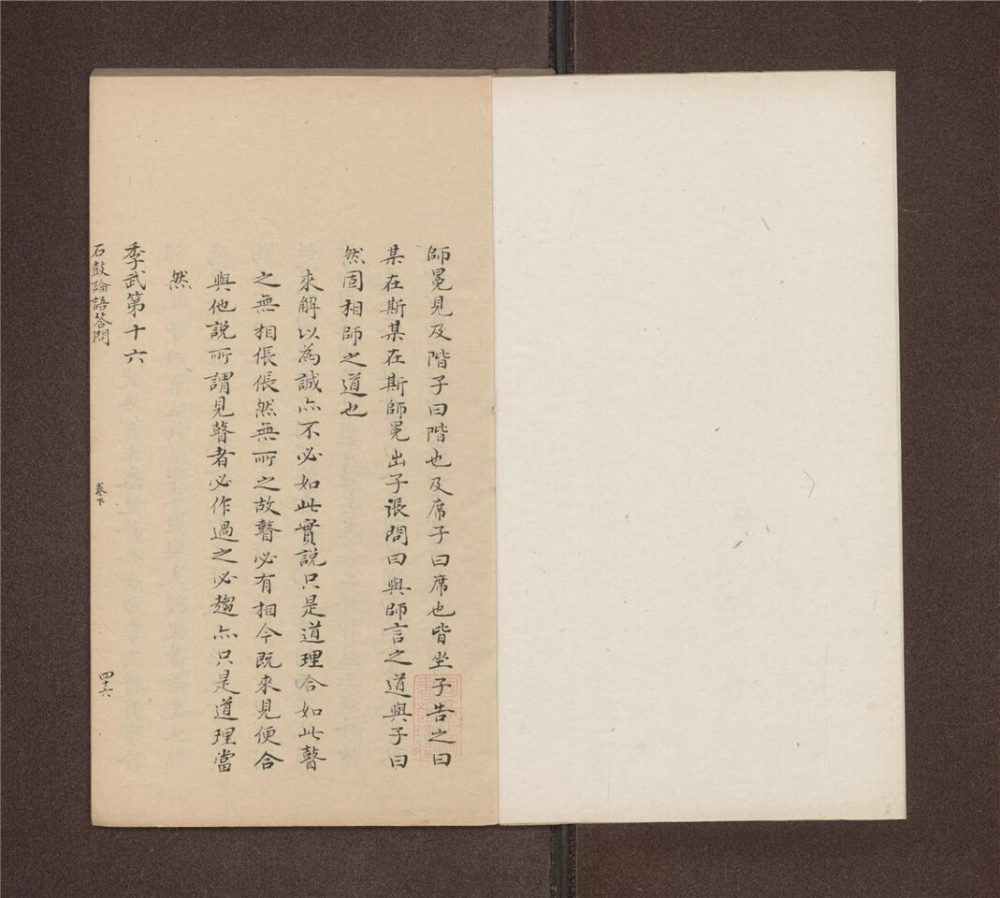 師冕見及階子曰階也及席子曰席也皆坐子告之曰
某在斯某在斯師冕出子張問曰與師言之道與子曰
然固相師之道也
來解以為誠亦不必如此實說只是道理合如此瞽
之無相倀倀然無所之故瞽必有相今既來見便合
與他說所謂見瞽者必作過之必趨亦只是道理當
然
季武第十六
石鼓論語答問
卷下
四十六